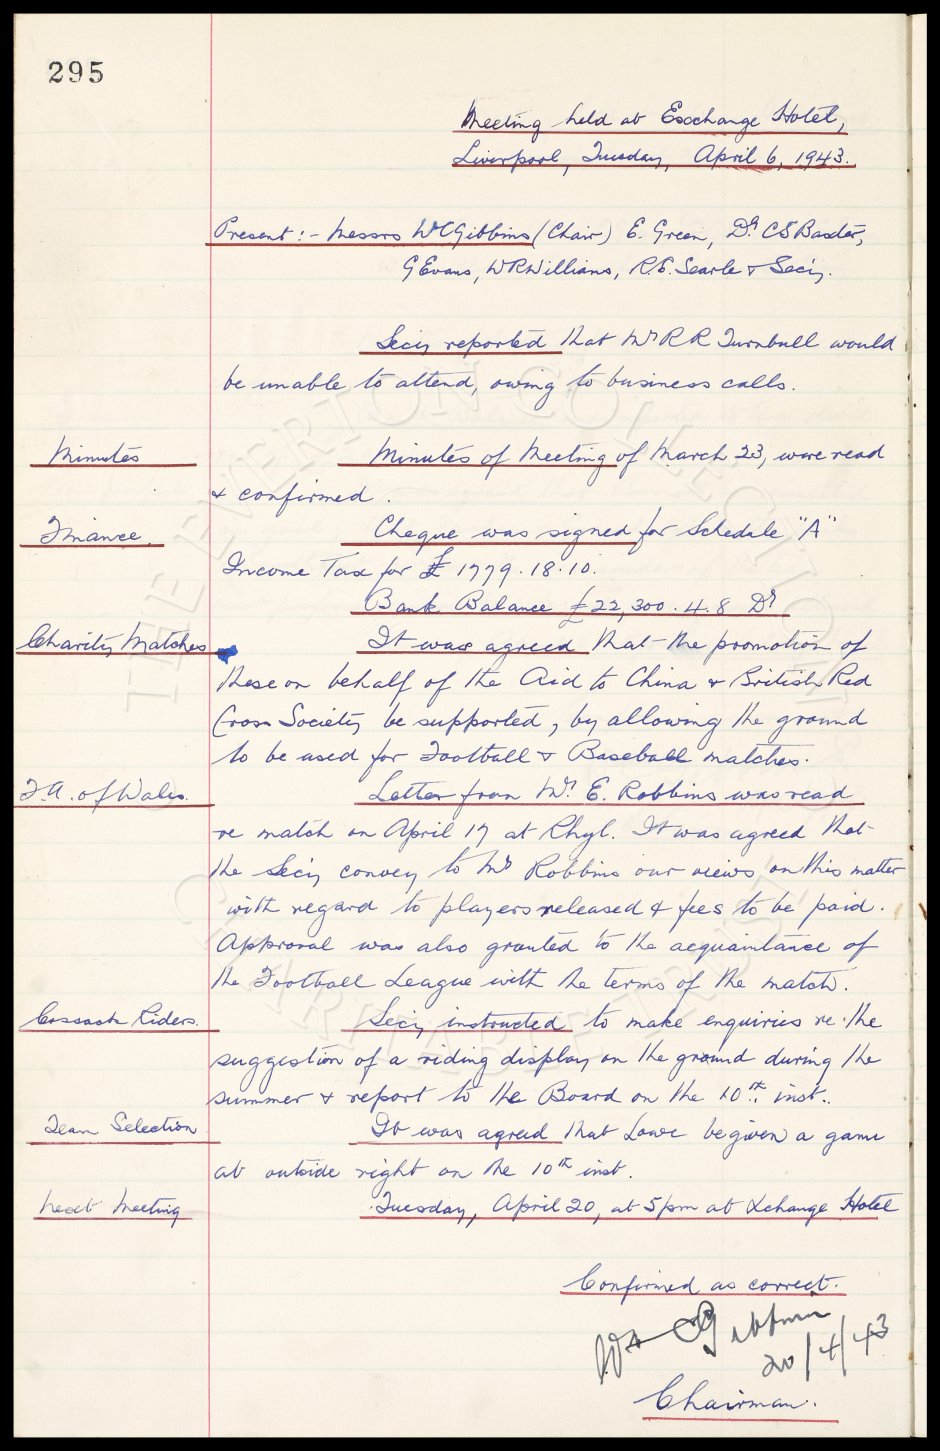 295
Meeting held at Exchange Hotel,
Liverpool, Tuesday, April 6, 1943.
Present:- Messrs W C Gibbins (Chair) E. Green, Dr. C S Baxter,
G Evans, W R Williams, R. E. Searle & Secy.
Secy reported that Mr R R Turnbull would
be unable to attend, owing to business calls.
Minutes
Minutes of Meeting of March 23, were read
& confirmed.
Finance.
Cheque was signed for Schedule "A"
Income Tax for £1779.18.10.
Bank Balance £22,300.4.8 Dr
Charity Matches
It was agreed that the promotion of
these on behalf of the Aid to China & British Red
Cross Society be supported, by allowing the ground
to be used for Football & Baseball matches.
F.A. of Wales.
Letter from Mr. E. Robbins was read
re match on April 17 at Rhyl. It was agreed that
the Secy convey to Mr Robbins our views on this matter
with regard to players released & fees to be paid.
Approval was also granted to the acquaintance of
the Football League with the terms of the match.
Cossack Riders.
Secy instructed to make enquiries re. the
suggestion of a riding display on the ground during the
summer & report to the Board on the 10th. inst..
Team Selection
It was agreed that Lowe be given a game
at outside right on the 10th inst.
Next Meeting
Tuesday, April 20, at 5pm at Xchange Hotel
Confirmed as correct.
Wm C Gibbins
20/4/43
Chairman.
THE EVERTON COLLECTION
CHARITABLE TRUST